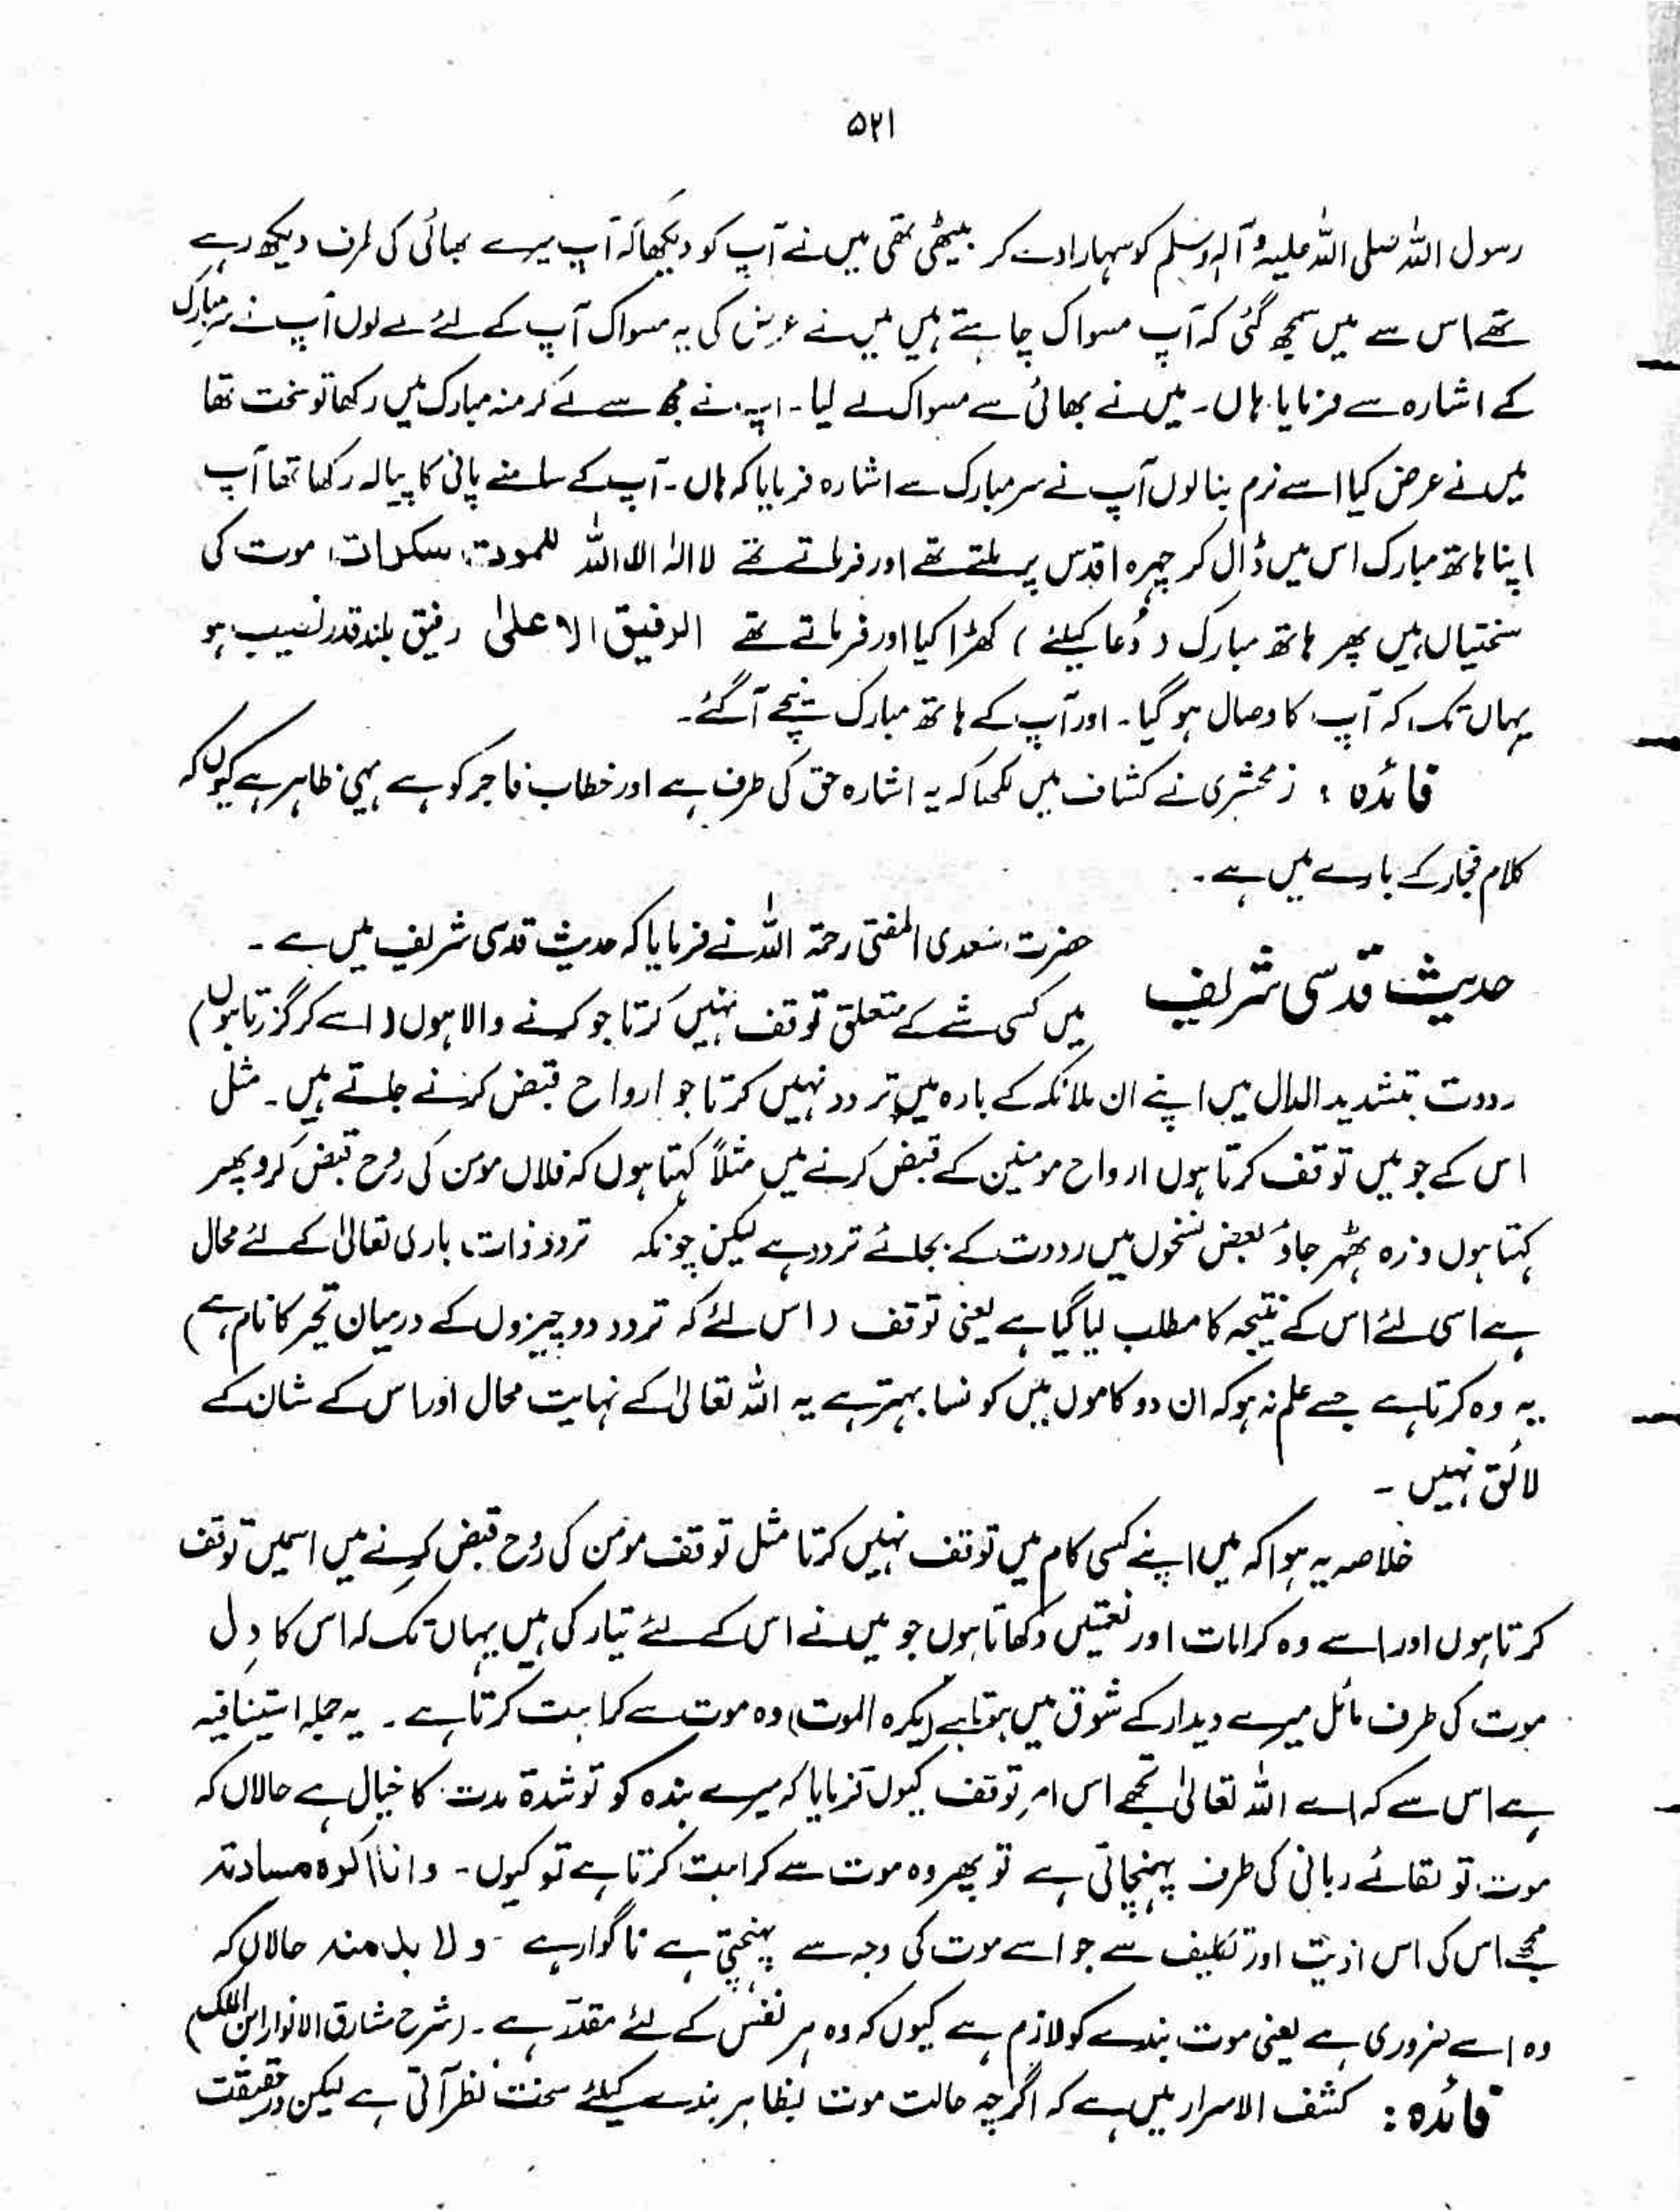 ۵۲۱
رسول اللہ صلی اللہ علیہ وآلہ وسلم کو سہارا دے کر بیٹھی تھی میں نے آپ کو دیکھا کہ آپ میرے بھائی کی طرف دیکھ رہے
تھے اس سے میں سمجھ گئی کہ آپ مسواک چاہتے ہیں میں نے عرض کی یہ مسواک آپ کے لئے لے لوں آپ نے سر مبارک
کے اشارہ سے فرمایا ہاں۔ میں نے بھائی سے مسواک لے لیا۔ آپ نے مجھ سے لے کر منہ مبارک میں رکھا تو سخت تھا
میں نے عرض کیا اسے نرم بنا لوں آپ نے سر مبارک سے اشارہ فرمایا کہ ہاں۔ آپ کے سامنے پانی کا پیالہ رکھا تھا آپ
اپنا ہاتھ مبارک اس میں ڈال کر چہرہ اقدس پر ملتے تھے اور فرماتے تھے لا الہ الا اللہ للموت سکرات، موت کی
سختیاں ہیں پھر ہاتھ مبارک (دُعا کیلئے) کھڑا کیا اور فرماتے تھے الرفیق الاعلیٰ رفیق بلند قدر نصیب ہو
یہاں تک کہ آپ کا وصال ہو گیا۔ اور آپ کے ہاتھ مبارک نیچے آ گئے۔
فائدہ : زمخشری نے کشاف میں لکھا کہ یہ اشارہ حق کی طرف ہے اور خطاب فاجر کو ہے یہی ظاہر ہے کیوں کہ
کلام فجار کے بارے میں ہے۔
حدیث قدسی شریف
حضرت سعدی المفتی رحمۃ اللہ نے فرمایا کہ حدیث قدسی شریف میں ہے۔
میں کسی شے کے متعلق توقف نہیں کرتا جو کرنے والا ہوں (اسے کر گزرتا ہوں)
رددت بتشدید الدال میں اپنے ان ملائکہ کے بارہ میں تردد نہیں کرتا جو ارواح قبض کرنے جاتے ہیں۔ مثل
اس کے جو میں توقف کرتا ہوں ارواح مومنین کے قبض کرنے میں مثلاً کہتا ہوں کہ فلاں مومن کی روح قبض کرو پھر
کہتا ہوں ذرہ ٹھہر جاؤ بعض نسخوں میں رددت کے بجائے تردد ہے لیکن چونکہ تردد ذات باری تعالیٰ کے لئے محال
ہے اسی لئے اس کے نتیجہ کا مطلب لیا گیا ہے یعنی توقف (اس لئے کہ تردد دو چیزوں کے درمیان تحیر کا نام ہے)
یہ وہ کرتا ہے جسے علم نہ ہو کہ ان دو کاموں میں کونسا بہتر ہے یہ اللہ تعالیٰ کے نہایت محال اور اس کے شان کے
لائق نہیں ۔
خلاصہ یہ ہوا کہ میں اپنے کسی کام میں توقف نہیں کرتا مثل توقف مومن کی رُوح قبض کرنے میں اسمیں توقف
کرتا ہوں اور اسے وہ کرامات اور نعمتیں دکھاتا ہوں جو میں نے اس کے لئے تیار کی ہیں یہاں تک کہ اس کا دل
موت کی طرف مائل میرے دیدار کے شوق میں ہوتا ہے (یکرہ الموت) وہ موت سے کراہت کرتا ہے۔ یہ جملہ استینافیہ
ہے اس سے کہ اے اللہ تعالیٰ تجھے اس امر توقف کیوں فرمایا کہ میرے بندہ کو تو شدۃ مدت کا خیال ہے حالاں کہ
موت تو لقائے ربانی کی طرف پہنچاتی ہے تو پھر وہ موت سے کراہت کرتا ہے تو کیوں۔ وانا اکرہ مساءتہ
مجھے اس کی اس اذیت اور تکلیف سے جو اسے موت کی وجہ سے پہنچتی ہے ناگوار ہے۔ ولا بد منہ حالاں کہ
وہ اسے ضروری ہے یعنی موت بندے کو لازم ہے کیوں کہ وہ ہر نفس کے لئے مقدر ہے۔ (شرح مشارق الانوار ابن الملک)
فائدہ : کشف الاسرار میں ہے کہ اگرچہ حالت موت بظاہر بندے کیلئے سخت نظر آتی ہے لیکن درحقیقت